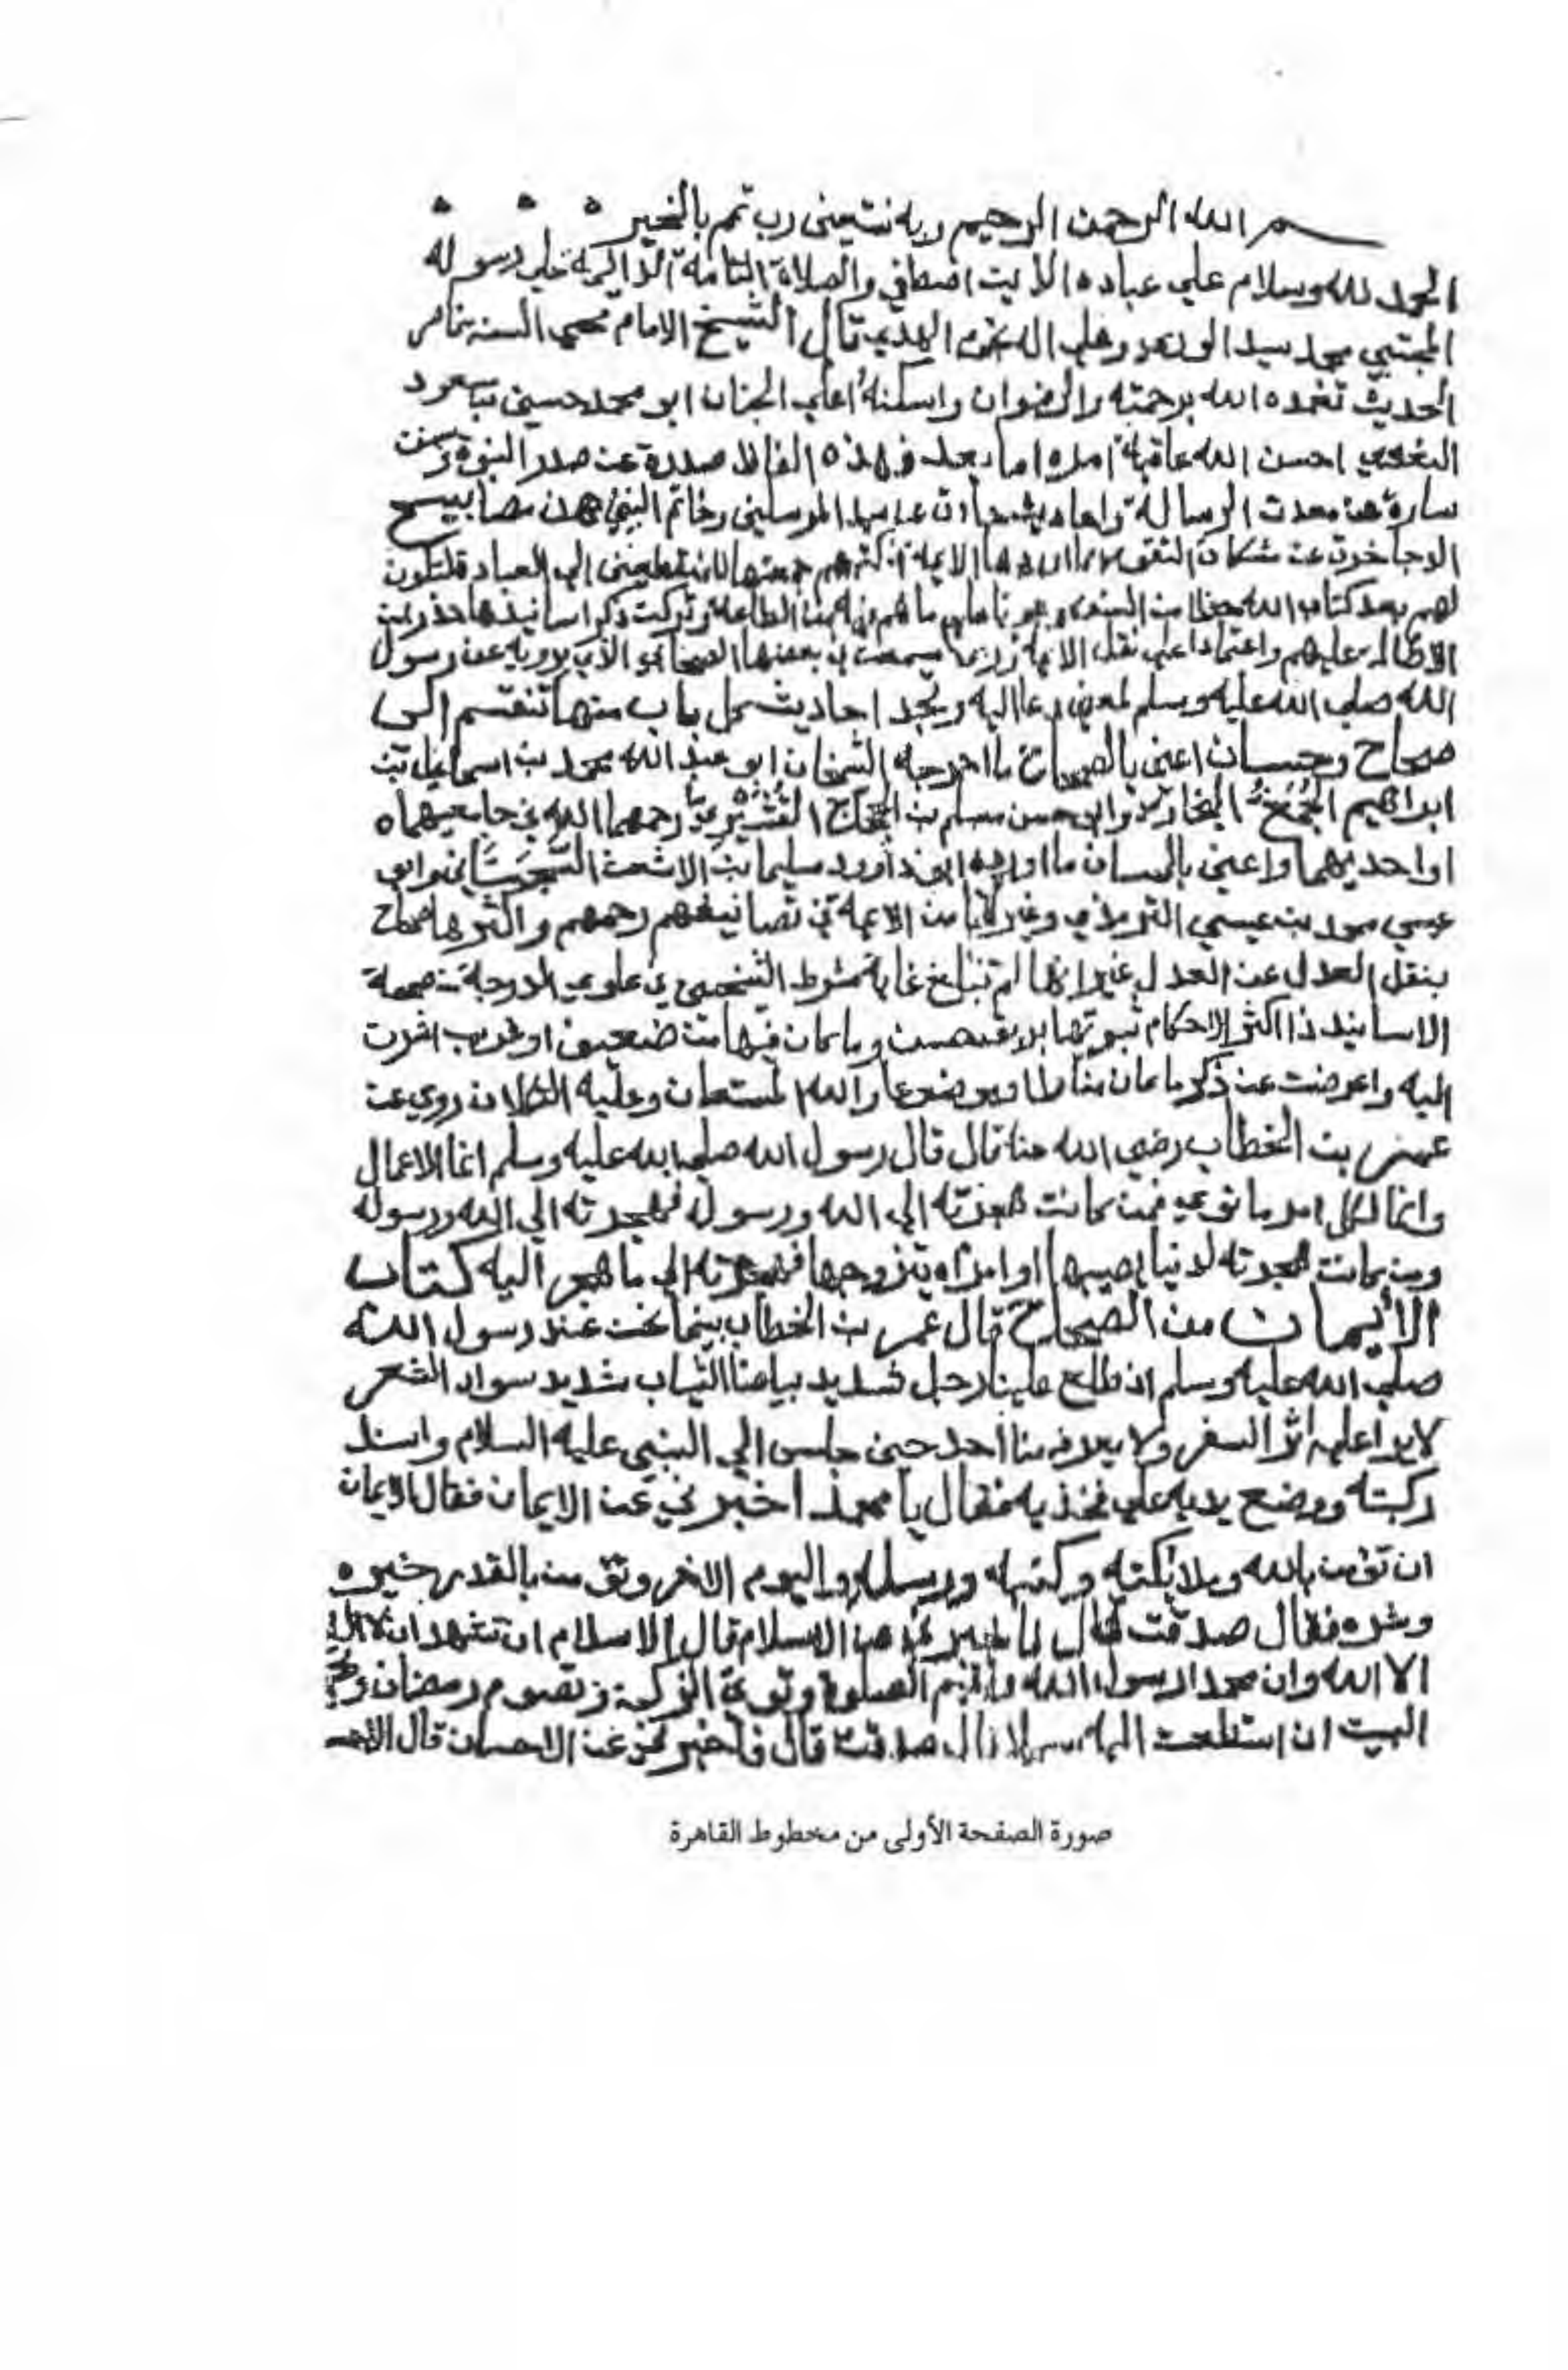 بسم الله الرحمن الرحيم وبه نستعين رب تمم بالخير
الحمد لله وسلام علي عباده الذين اصطفي والصلاة التامة الدايمة علي رسوله
المجتبي محمد سيد الوري وعلي اله نجوم الهدي قال الشيخ الامام محيي السنة ناصر
الحديث تغمده الله برحمته والرضوان واسكنه اعلي الجنان ابو محمد حسين بن مسعود
البغوي احسن الله عاقبة امره اما بعد فهذه الفاظ صدرة عن صدر النبوة وسنن
سارة عن معدن الرسالة واحاديث جاءت عن سيد المرسلين وخاتم النبيين هن مصابيح
الدجا خرجت عن مشكاة التقوي مما اوردها الايمة في كتبهم جمعتها للمنقطعين الي العباد فلتكون
لهم بعد كتاب الله حظا من السنن وعونا علي ما هم فيه من الطاعة وتركت ذكر اسانيدها حذر من
الاطالة عليهم واعتمادا علي نقل الايمة وربما سميت في بعضها الصحابي الذي يرويه عن رسول
الله صلي الله عليه وسلم لمعني دعا اليه وتجد احاديث كل باب منها تنقسم الي
صحاح وحسان اعني بالصحاح ما اخرجه الشيخان ابو عبد الله محمد بن اسماعيل بن
ابراهيم الجعفي البخاري وابو حسن مسلم بن الحجاج القشيري رحمهما الله في جامعيهما
او احدهما واعني بالحسان ما اورده ابو داود سليمان بن الاشعث السجستاني وابو
عيسي محمد بن عيسي الترمذي وغيرهما من الايمة في تصانيفهم رحمهم واكثرها صحاح
بنقل العدل عن العدل غير انها لم تبلغ غاية شرط الشيخين في علو الدرجة من صحة
الاسانيد اذ اكثر الاحكام ثبوتها بطريق حسن وما كان فيها من ضعيف او غريب اشرت
اليه واعرضت عن ذكر ما كان منكرا او موضوعا والله المستعان وعليه التكلان روي عن
عمر بن الخطاب رضي الله عنه قال قال رسول الله صلي الله عليه وسلم انما الاعمال
وانما لكل امر ما نوي فمن كانت هجرته الي الله ورسوله فهجرته الي الله ورسوله
ومن كانت هجرته لدنيا يصيبها او امراه يتزوجها فهجرته الي ما هجر اليه كتاب
الايمان من الصحاح قال عمر بن الخطاب بينما نحن عند رسول الله
صلي الله عليه وسلم اذ طلع علينا رجل شديد بياض الثياب شديد سواد الشعر
لا يرا عليه اثر السفر ولا يعرفه منا احد حتي جلس الي النبي عليه السلام واسند
ركبته ووضع يديه علي فخذيه فقال يا محمد اخبرني عن الايمان فقال الايمان
ان تؤمن بالله وملائكته وكتبه ورسله واليوم الاخر وتؤمن بالقدر خيره
وشره فقال صدقت قال فاخبرني عن الاسلام قال الاسلام ان تشهد ان لا اله
الا الله وان محمد الرسول الله وتقيم الصلوة وتوتي الزكوة وتصوم رمضان وتحج
البيت ان استطعت اليه سبيلا قال صدقت قال فاخبرني عن الاحسان قال الاحـ
صورة الصفحة الأولى من مخطوط القاهرة